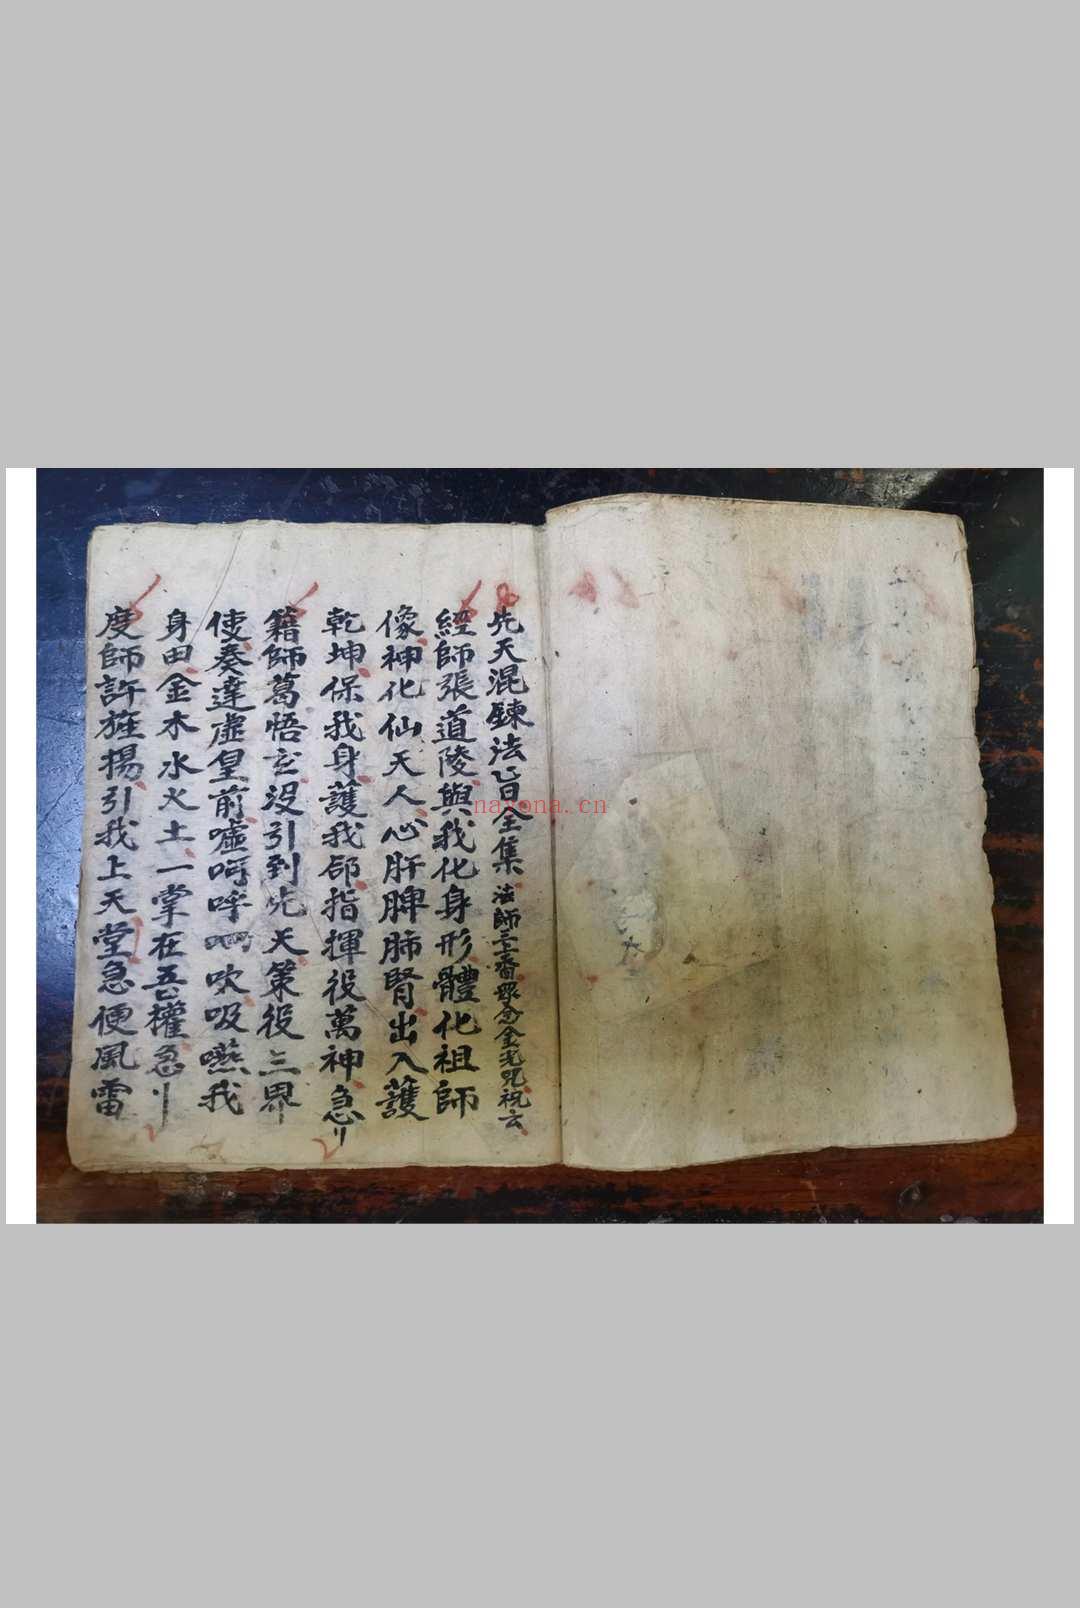 先天混鍊法旨全集 法師三上香眾念金光咒祝云
經師張道陵與我化身形體化祖師
像神化仙天人心肝脾肺腎出入護
乾坤保我身護我郃指揮役萬神急〢
籍師葛悟玄沒引到先天策役三界
使奏達虛皇前噓呵呼呬吹吸嚥我
身田金木水火土一掌在五權急〢
度師許旌揚引我上天堂急便風雷
nayona.cn